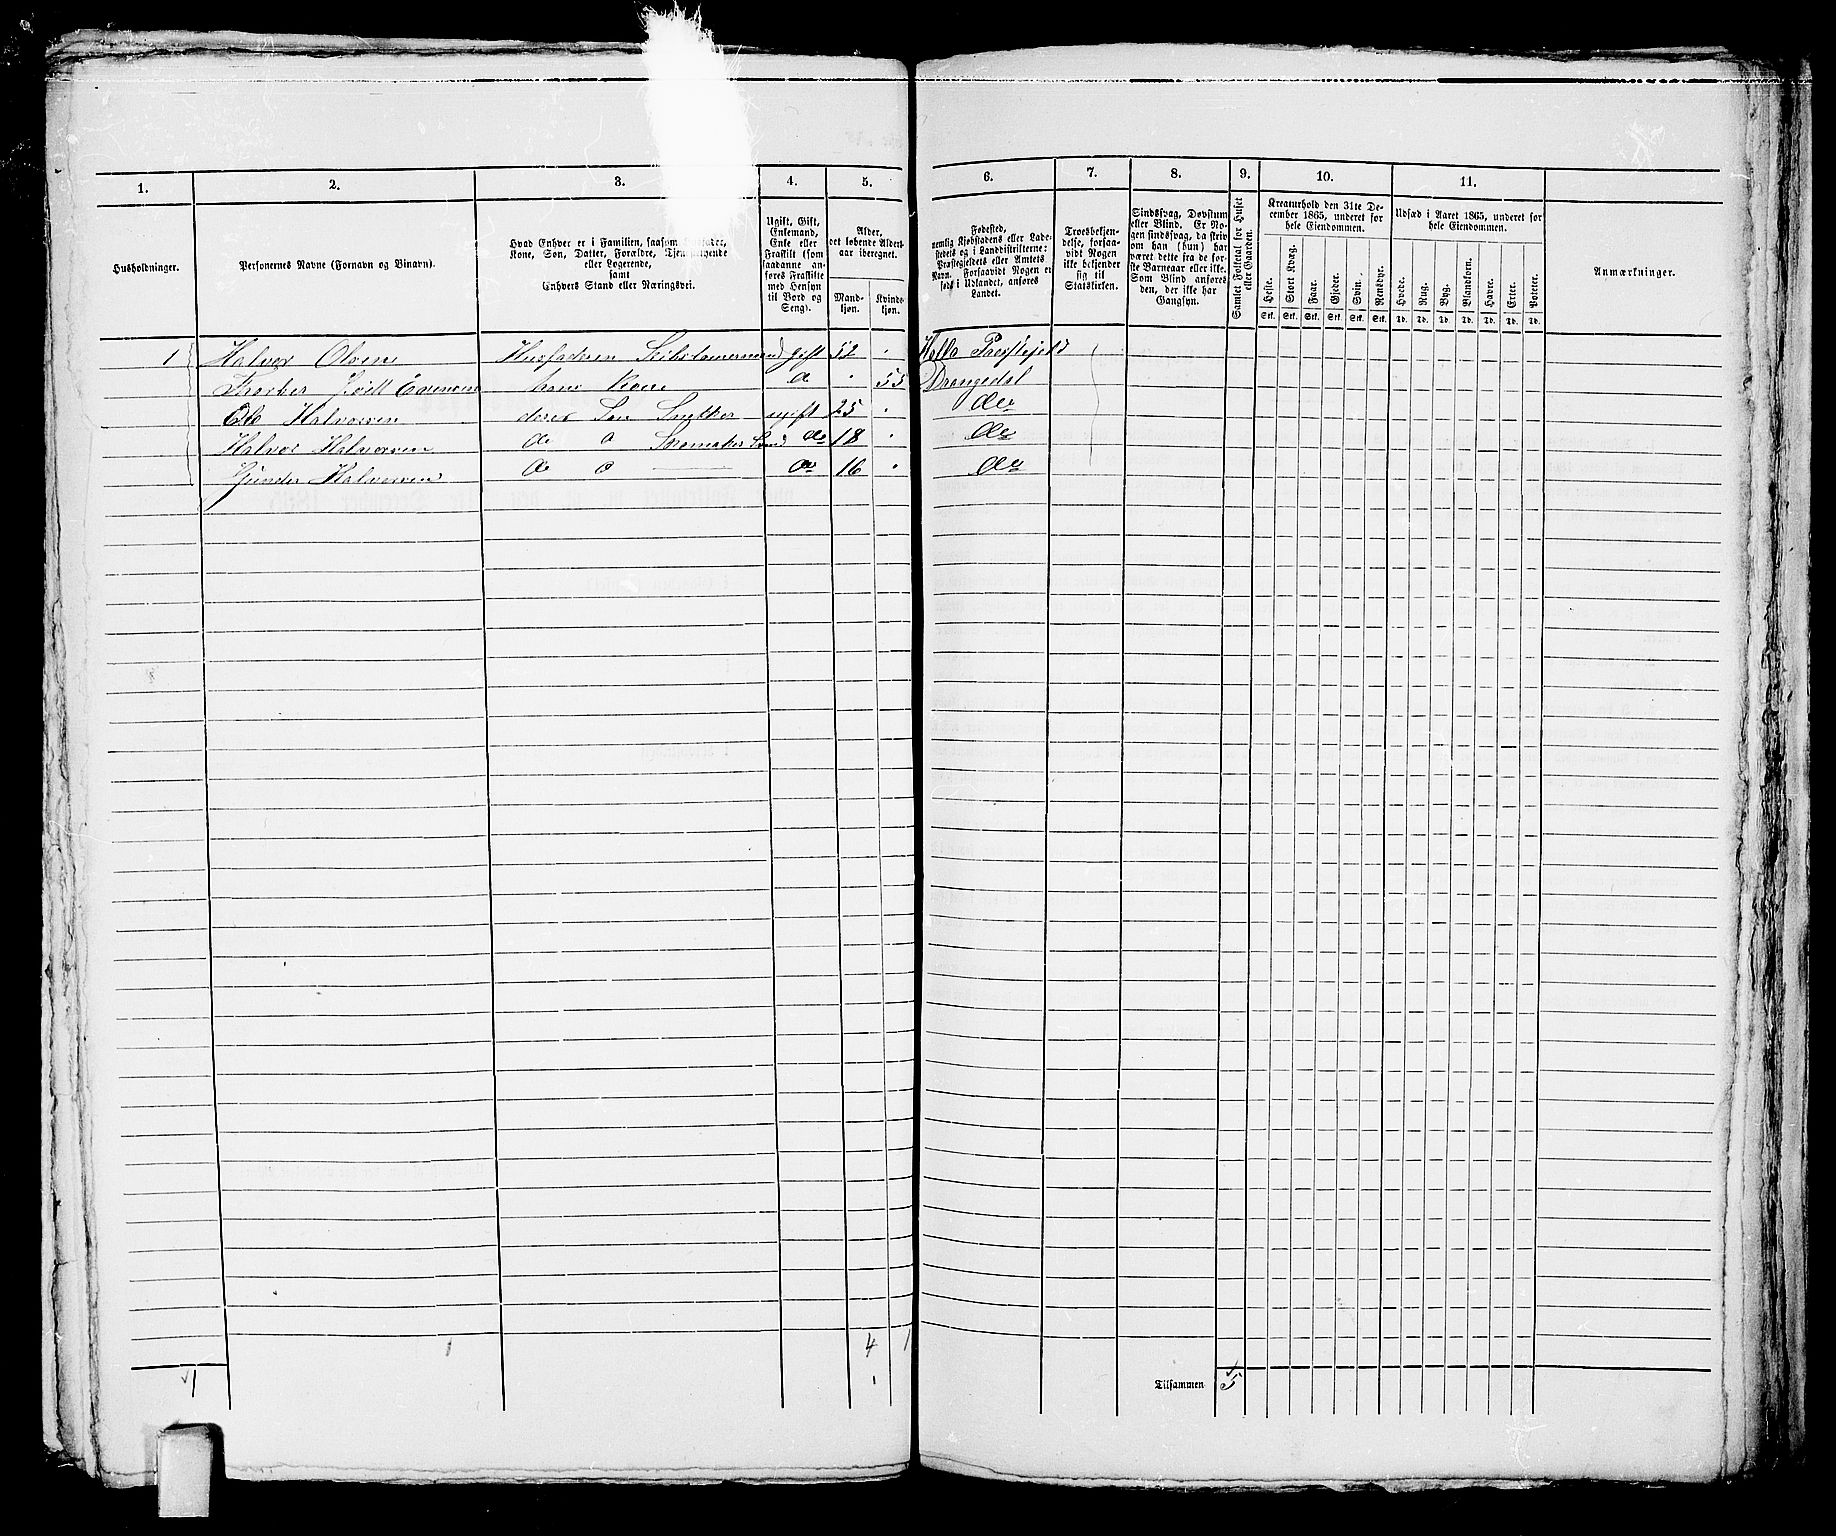 1.
2.
3.
4.
5.
6.
7.
8.
9.
10.
11.
Husholdninger.
Personernes Navne (Fornavn og Binavn).
Hvad Enhver er i Familien, saasom
Kone, Søn, Datter, Forældre, Tjenestetyende
eller Logerende,
samt
Enhvers Stand eller Næringsvei.
Ugift, Gift,
Enkemand,
Enke eller
Fraskilt (som
saadanne an-
føres Fraskilte
med Hensyn
til Bord og
Seng).
Alder,
det løbende Alders-
aar iberegnet.
Mand-
kjøn.
Kvinde-
kjøn.
Fødested,
nemlig Kjøbstadens eller Lade-
stedets og i Landdistrikterne:
Præstegjeldets eller Amtets
Navn. Forsaavidt Nogen er
født i Udlandet, anføres
Landet.
Troesbekjen-
delse, forsaa-
vidt Nogen
ikke bekjender
sig til
Statskirken.
Sindssvag, Døvstum
eller Blind. Er No-
gen sindssvag, da skriv
om han (hun) har
været dette fra de før-
ste Barneaar eller ikke.
Som Blind anføres
den, der ikke har
Gangsyn.
Samlet Folketal for Huset
eller Gaarden.
Kreaturhold den 31te De-
cember 1865, underet for
hele Eiendommen.
Heste.
Stort Kvæg.
Faar.
Gjeder.
Svin.
Rensdyr.
Stk. Stk. Stk. Stk. Stk. Stk.
Udsæd i Aaret 1865, underet for
hele Eiendommen.
Hvede.
Rug.
Byg.
Blandkorn.
Havre.
Erter.
Poteter.
Td. Td. Td. Td. Td. Td. Td.
Anmærkninger.
1 Halvor Olsen Husfaderen gift 52 Holla Præstejeld
Evensen hans Kone do 55 Drangedal
Ole Halvorsen deres Søn Snekker ugift 25 do
Halvor Halvorsen do o Skomaker do 18 do
Gunder Halvorsen do o do 16 do
4 1
1
Tilsammen 5